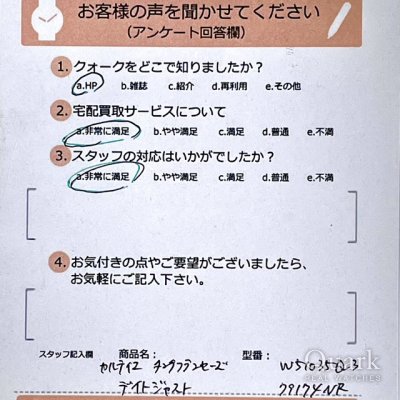 お客様の声を聞かせてください
（アンケート回答欄）
1. クォークをどこで知りましたか？
a.HP b.雑誌 c.紹介 d.再利用 e.その他
2. 宅配買取サービスについて
a.非常に満足 b.やや満足 c.満足 d.普通 e.不満
3. スタッフの対応はいかがでしたか？
a.非常に満足 b.やや満足 c.満足 d.普通 e.不満
4. お気付きの点やご要望がございましたら、
お気軽にご記入下さい。
スタッフ記入欄 商品名： 型番：
カルティエ タンクフランセーズ W51035Q3
デイトジャスト 79174NR
Quark
REAL WATCHES